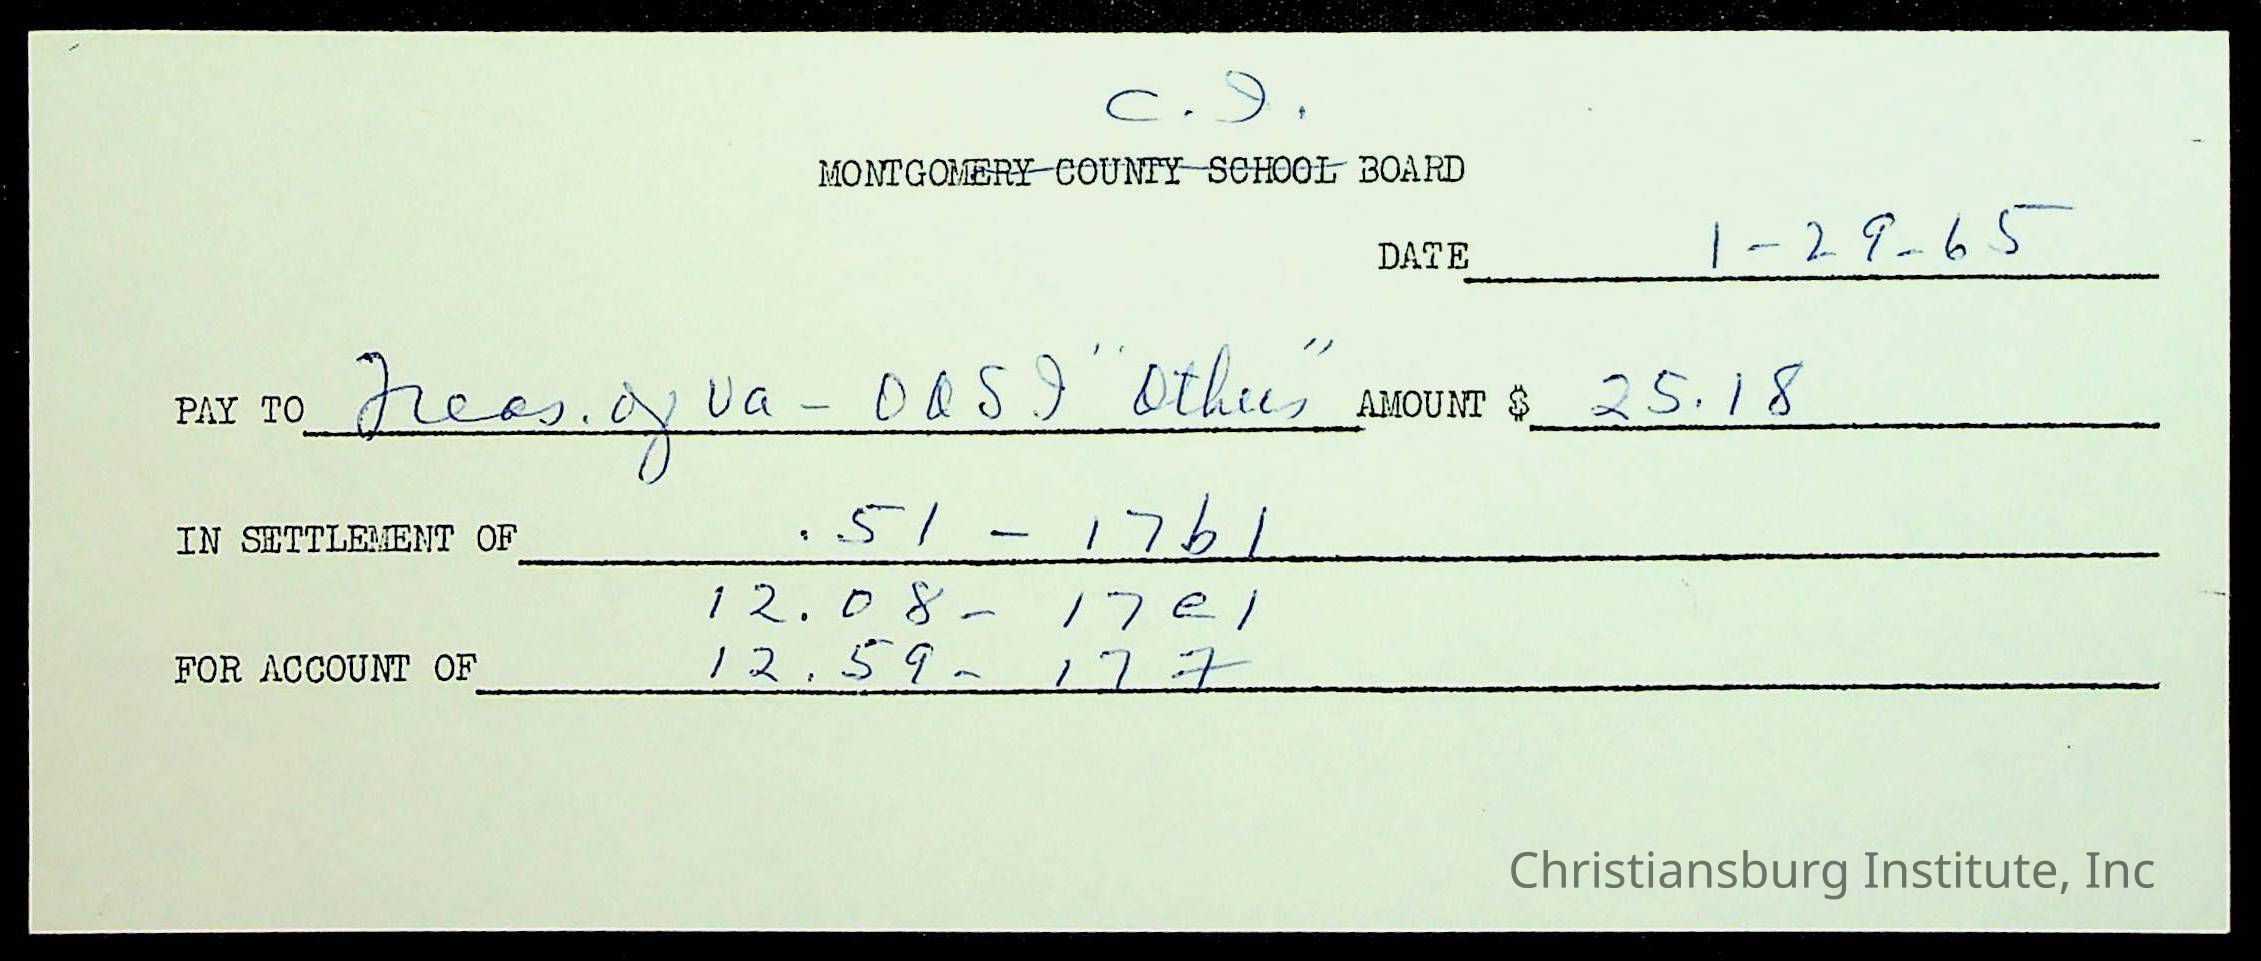 C. I.
MONTGOMERY COUNTY SCHOOL BOARD
DATE 1-29-65
PAY TO Treas. of Va - OASI "Other" AMOUNT $ 25.18
IN SETTLEMENT OF .51 - 17b1
12.08 - 17e1
FOR ACCOUNT OF 12.59 - 177
Christiansburg Institute, Inc